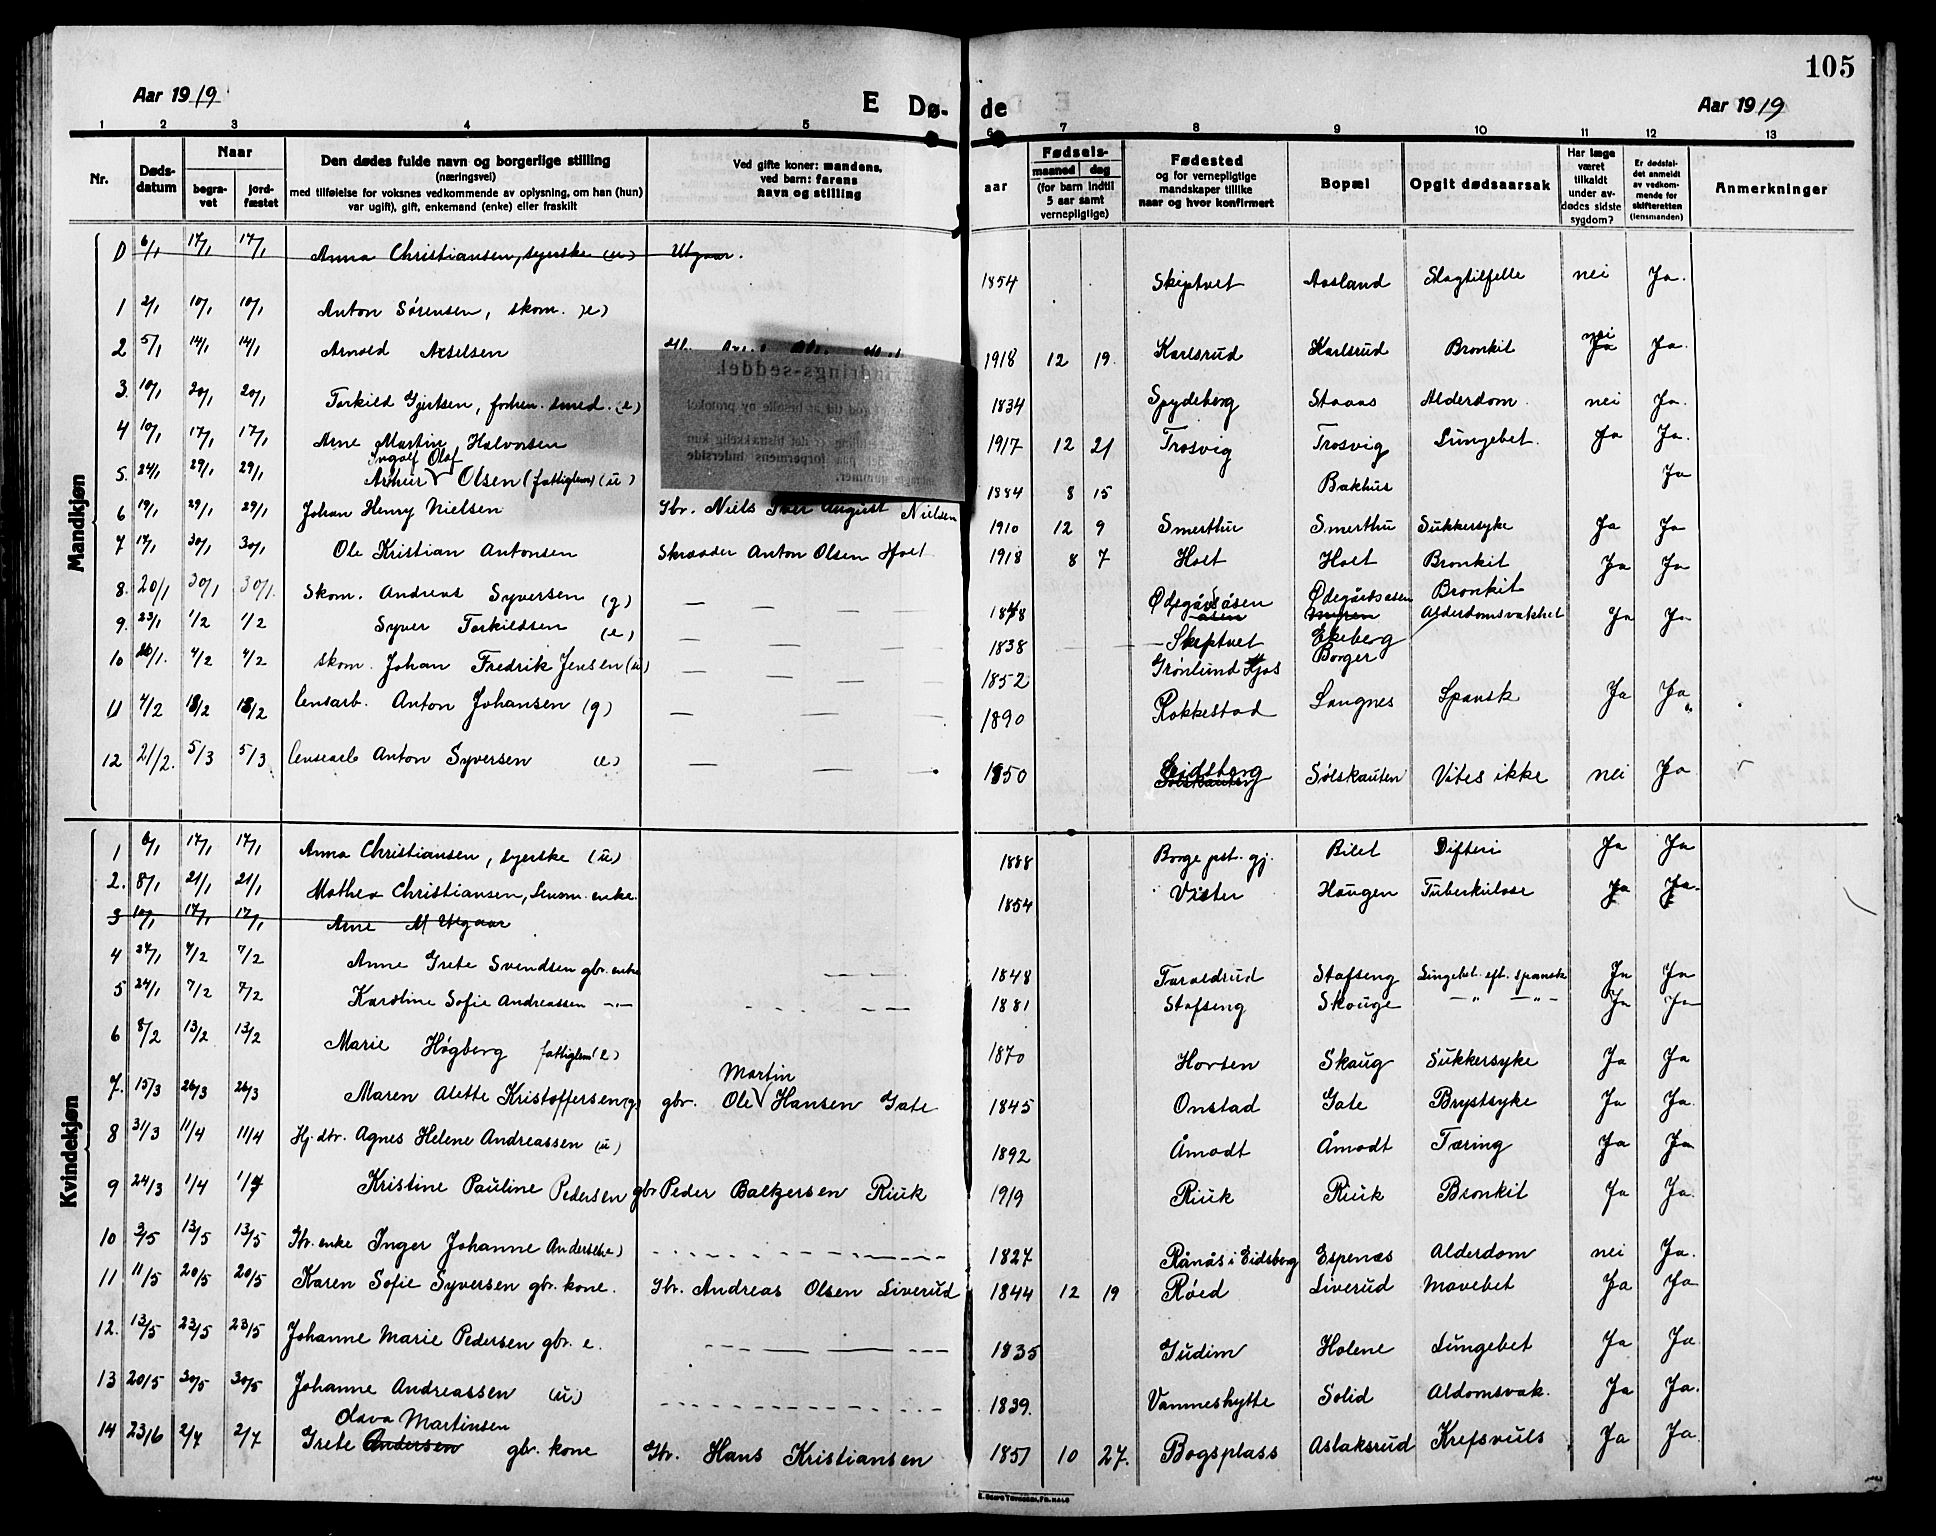 105
Aar 1919
E Dø-
de
Aar 1919
1 2 3 4 5 6 7 8 9 10 11 12 13
Nr.
Døds-
datum
Naar
begra-
vet
jord-
fæstet
Den dødes fulde navn og borgerlige stilling
(næringsvei)
med tilføielse for voksnes vedkommende av oplysning, om han (hun)
var ugift), gift, enkemand (enke) eller fraskilt
Ved gifte koner: mandens,
ved barn: farens
navn og stilling
aar
Fødsels-
maaned dag
(for barn indtil
5 aar samt
vernepligtige)
Fødested
og for vernepligtige
mandskaper tillike
naar og hvor konfirmert
Bopæl
Opgit dødsaarsak
Har læge
været
tilkaldt
under av-
dødes sidste
sygdom?
Er dødsfal-
det anmeldt
av vedkom-
mende for
skifteretten
(lensmanden)
Anmerkninger
Mandkjøn
0 6/1 17/1 17/1 Anna Christiansen, syerske (u) Utgaar.
1 2/1 10/1 10/1 Anton Sørensen, skom. (e) 1854 Skiptvet Aasland Slagtilfelle nei Ja.
2 5/1 14/1 14/1 Arnold Axelsen 1918 12 19. Karlsrud Karlsrud Bronkit nei Ja Ja.
3. 10/1 20/1 20/1 Torkild Gjertsen, forhen. smed. (e) 1834 Spydeberg Staaas Alderdom. nei Ja.
4 10/1 17/1 17/1 Arne Martin Halvorsen 1917 12 21 Trosvig Trosvig Lungebet. Ja Ja.
Ingolf Olaf
5. 24/1 29/1 29/1 Arthur Olsen (fattiglem) (u) 1884 8 15 Bakhus Ja
6 19/1 29/1 29/1 Johan Henry Nielsen Gbr. Niels Iver August Nielsen 1910 12 9 Smerthu Smerthu Sukkersyke Ja Ja
7 17/1 30/1 30/1 Ole Kristian Antonsen Skrædder Anton Olsen Holt 1918 8 7 Holt Holt Bronkit Ja Ja
8. 20/1 30/1 30/1. Skom. Andreas Syversen (g) — — — 1848 Ødegårdsåsen Ødegårdsåsen Bronkit
9. 23/1 1/2 1/2 Syver Torkildsen (e) — — — 1838 Skiptvet Ekeberg Alderdomsvakhet Ja Ja
10 26/1. 4/2 4/2 skom. Johan Fredrik Jensen (u) — — — 1852 Grønlund Borger
11 4/2 18/2 18/2 Censarb. Anton Johansen (g) — — — 1890 Rakkestad Langnes Spansk Ja Ja
12 21/2. 5/3 5/3 Anton Syversen (e) — — — 1850 Eidsberg Sølskauten Vites ikke nei Ja
Kvindekjøn
1 6/1 17/1 17/1 Anna Christiansen, syerske (u) 1888 Borge pst. gj. Bilet Difteri Ja Ja
2. 8/1 21/1 21/1 Mathea Christiansen, Lensm. enke. 1854 Vister Haugen Tuberkulose Ja Ja.
3 10/1 17/1 17/1 Arne M Utgaar
4 24/1 7/2 7/2 Anne Grete Svendsen gbr. enke — — — 1848 Taraldrud Stafseng Lungebet. eft. spansk Ja Ja
5 24/1 7/2 7/2 Karoline Sofie Andreassen —"— 1881 Stafseng Skauge —"— —"— Ja Ja
6 8/2 13/2 13/2 Marie Høgberg fattiglem (e) 1870 Horten Skaug Sukkersyke Ja Ja
Martin
7. 15/3 26/3 26/3 Maren Alette Kristoffersen (g) gbr. Ole Hansen Gate 1845 Onstad Gate Brystsyke Ja Ja.
8 31/3 11/4 11/4 Hj. dtr. Agnes Helene Andreassen (u) 1892 Åmodt Åmodt Tæring Ja Ja
9 24/3 1/4 1/4 Kristine Pauline Pedersen gbr Peder Baltzersen Riuk 1919 Riuk Riuk Bronkit Ja Ja.
10 3/5 13/5 13/5 Gbr. enke Inger Johanne Andersen (e) — — — 1827 Rånås i Eidsberg Espenæs Alderdom nei Ja.
11 11/5 20/5 20/5 Karen Sofie Syversen gbr. kone. Gbr. Andreas Olsen Liverud 1844 12 19 Røed Liverud Mavebet Ja Ja
12. 13/5 23/5 23/5 Johanne Marie Pedersen gbr. e. — — — 1835 Gudim Holene Lungebet Ja Ja.
13 20/5 30/5 30/5 Johanne Andreassen (u) — — — 1839. Vammeshytte Solid Aldomsvak. Ja Ja.
Olava Martinsen
14 23/6 2/7 2/7 Grete Andersen gbr. kone Gbr. Hans Kristiansen 1851 10 27. Bogsplass Aslaksrud Kræfsvuls Ja Ja.